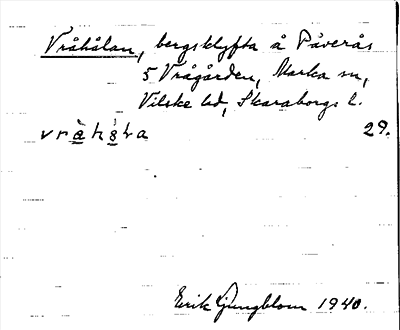 Vråhålan, bergsklyfta å Påverås
5 Vrågården, Marka sn,
Vilske hd, Skaraborgs l.
29.
Erik Ljungblom 1940.